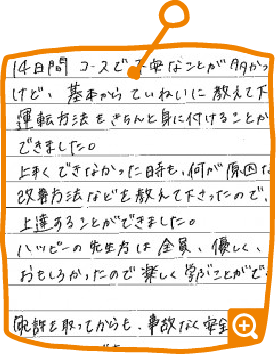 14日間 コースで不安なことが多かっ
けど、基本からていねいに教えて下
運転方法をきちんと身に付けることが
できました。
上手くできなかった時も、何が原因な
改善方法などを教えて下さったので、
上達することができました。
ハッピーの先生方は全員、優しく、
おもしろかったので楽しく学ぶことがで
免許を取ってからも、事故なく安全